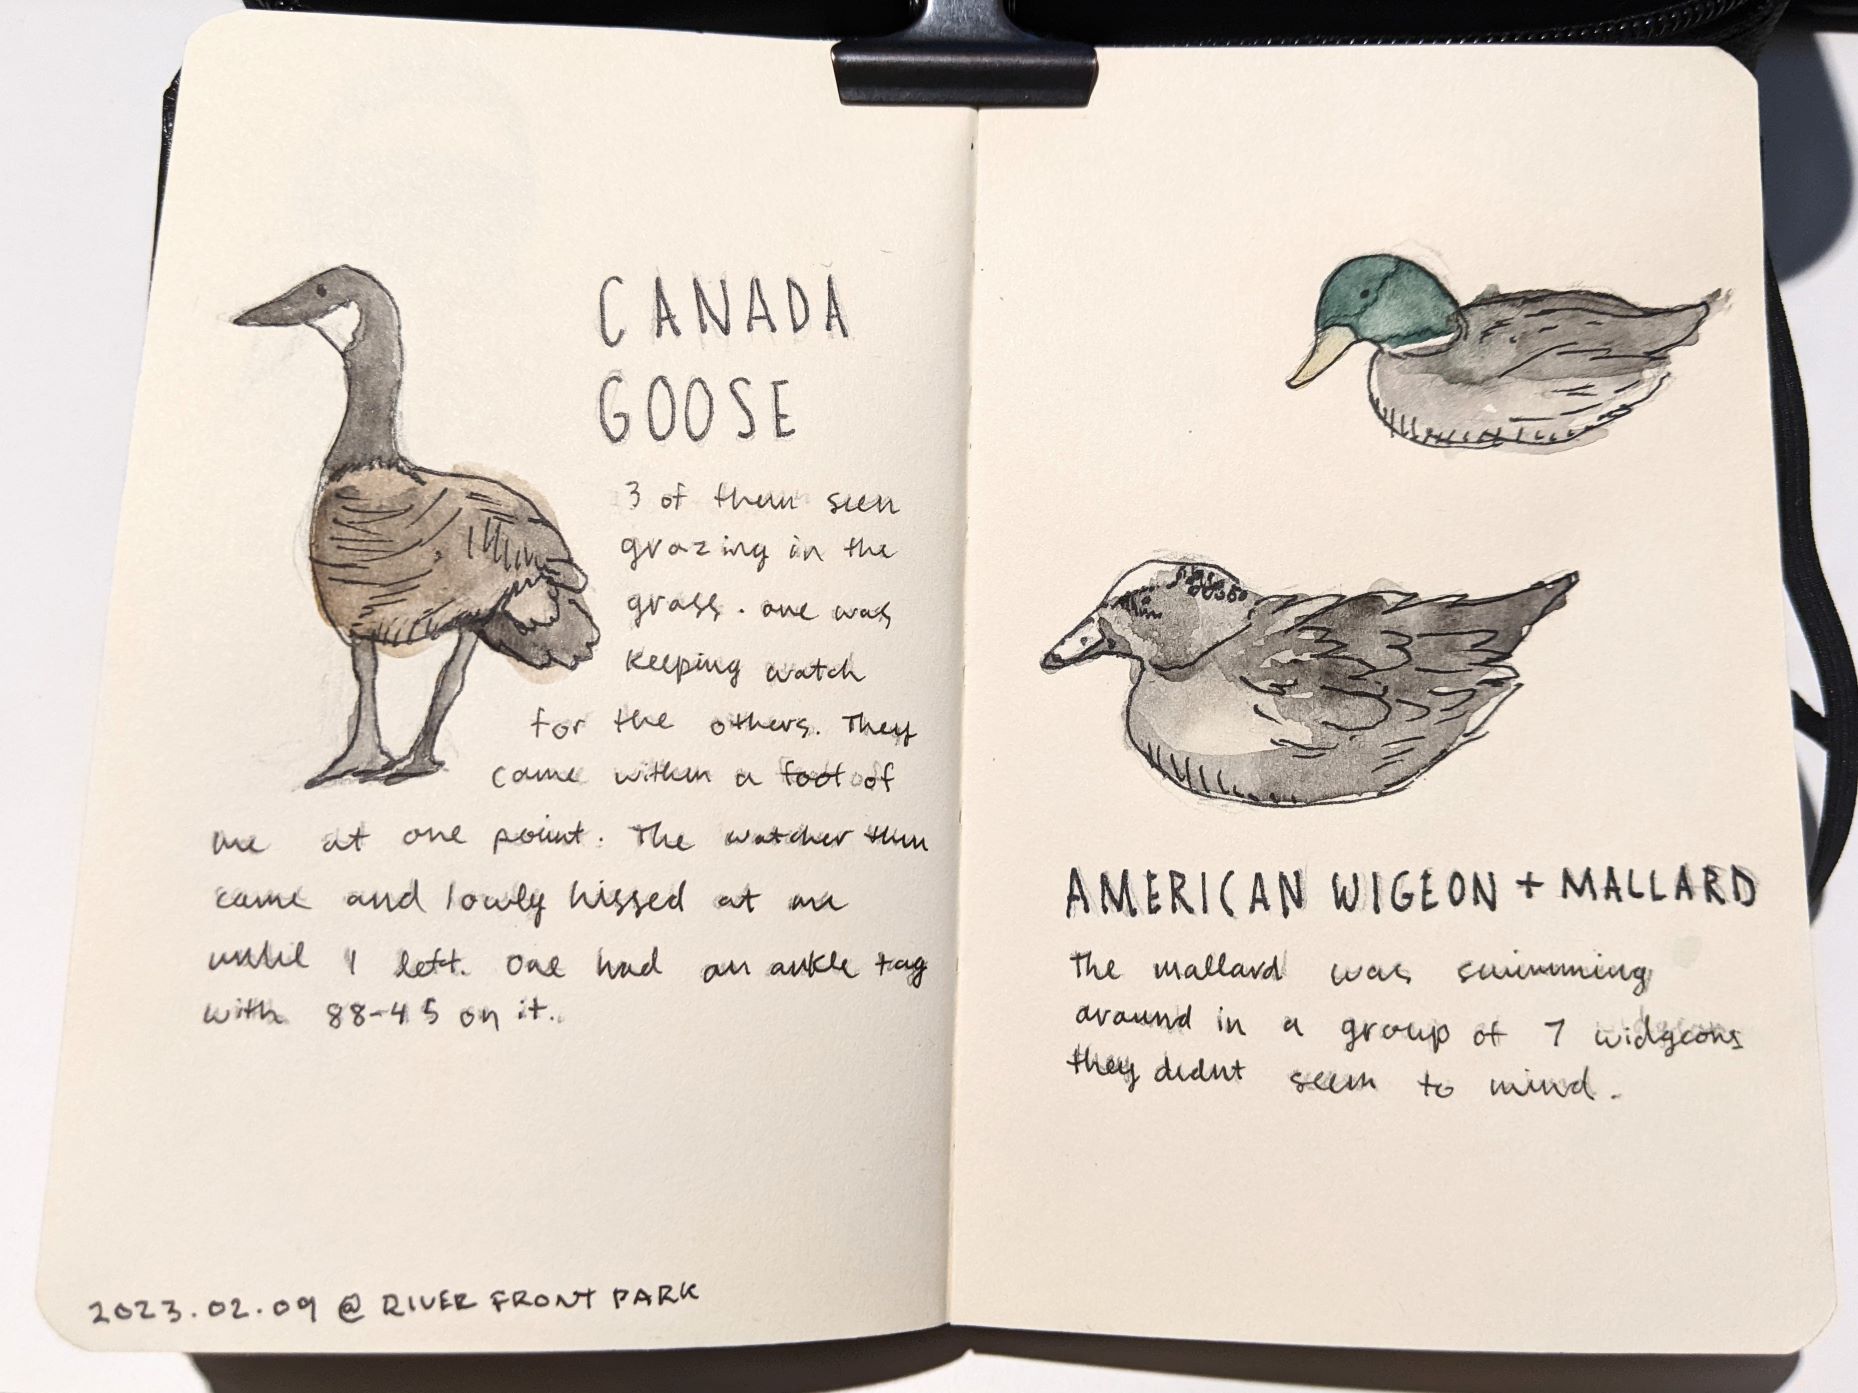 CANADA
GOOSE
3 of them seen
grazing in the
grass. one was
keeping watch
for the others. They
came within a foot of
me at one point. The watcher then
came and lowly hissed at me
until I left. One had an ankle tag
with 88-45 on it.
2023.02.09 @ RIVER FRONT PARK
AMERICAN WIGEON + MALLARD
The mallard was swimming
around in a group of 7 widgeons
they didnt seem to mind.